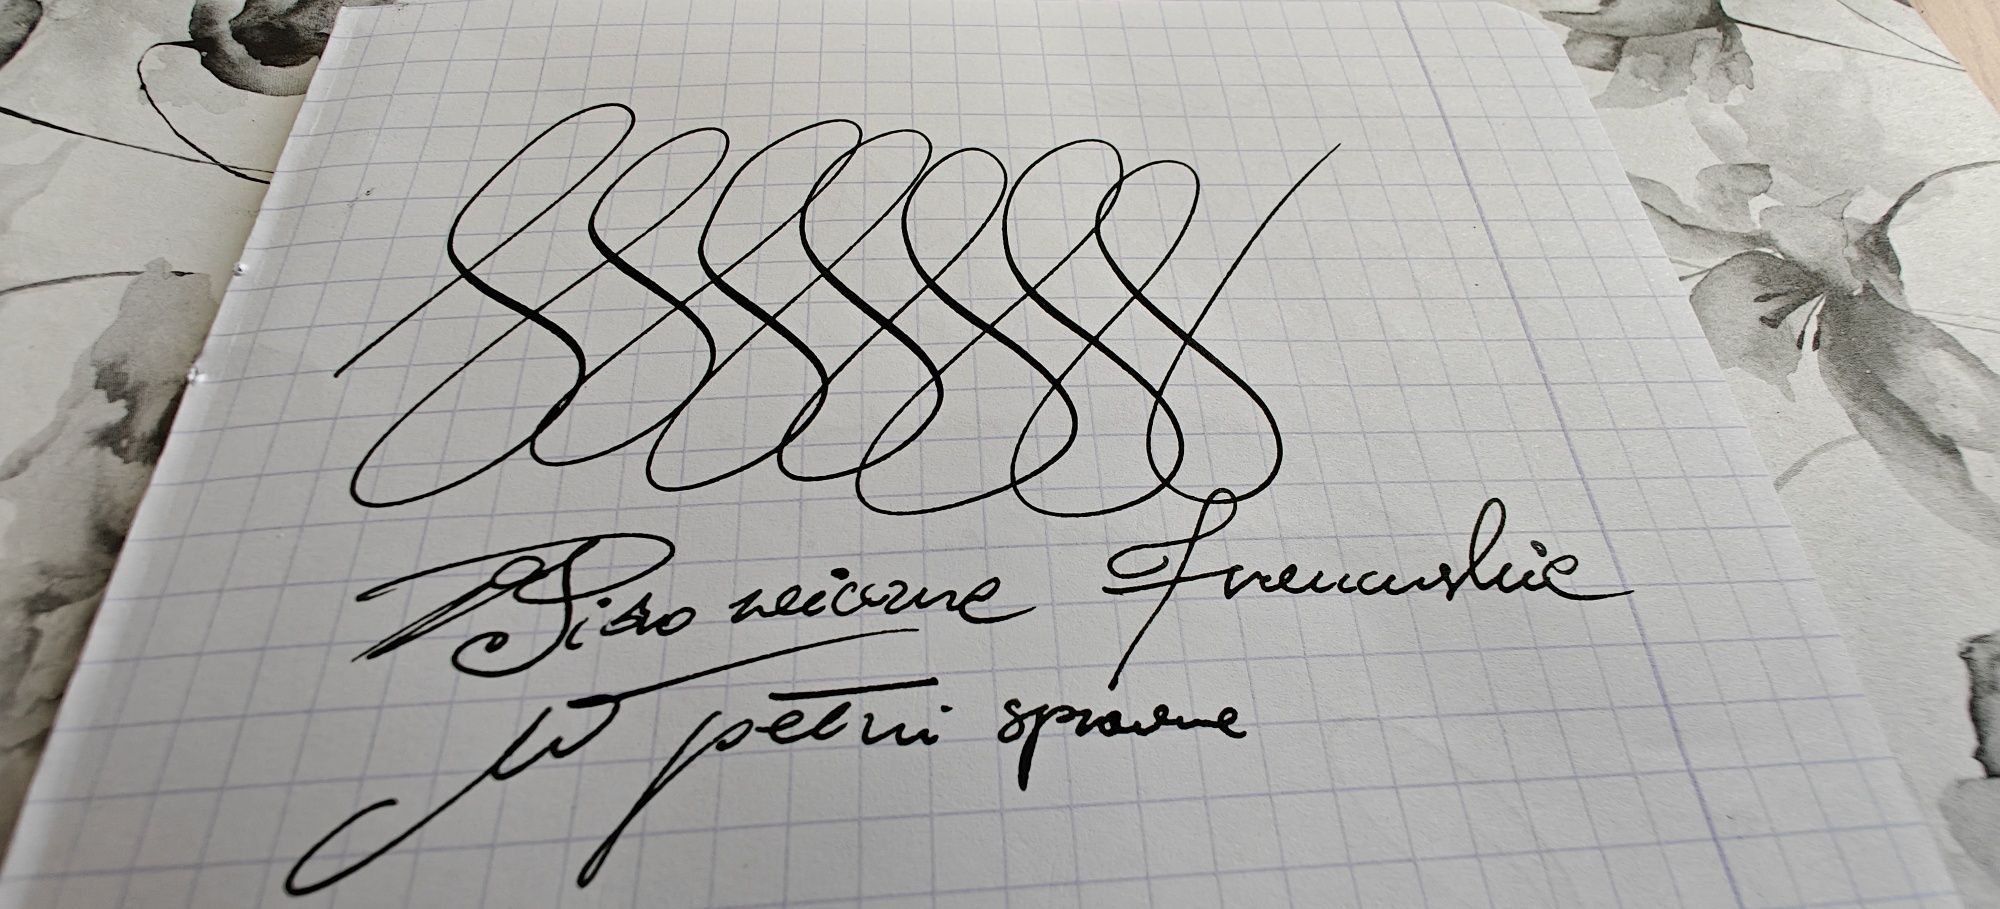 Pióro wieczne francuskie
W pełni sprawne